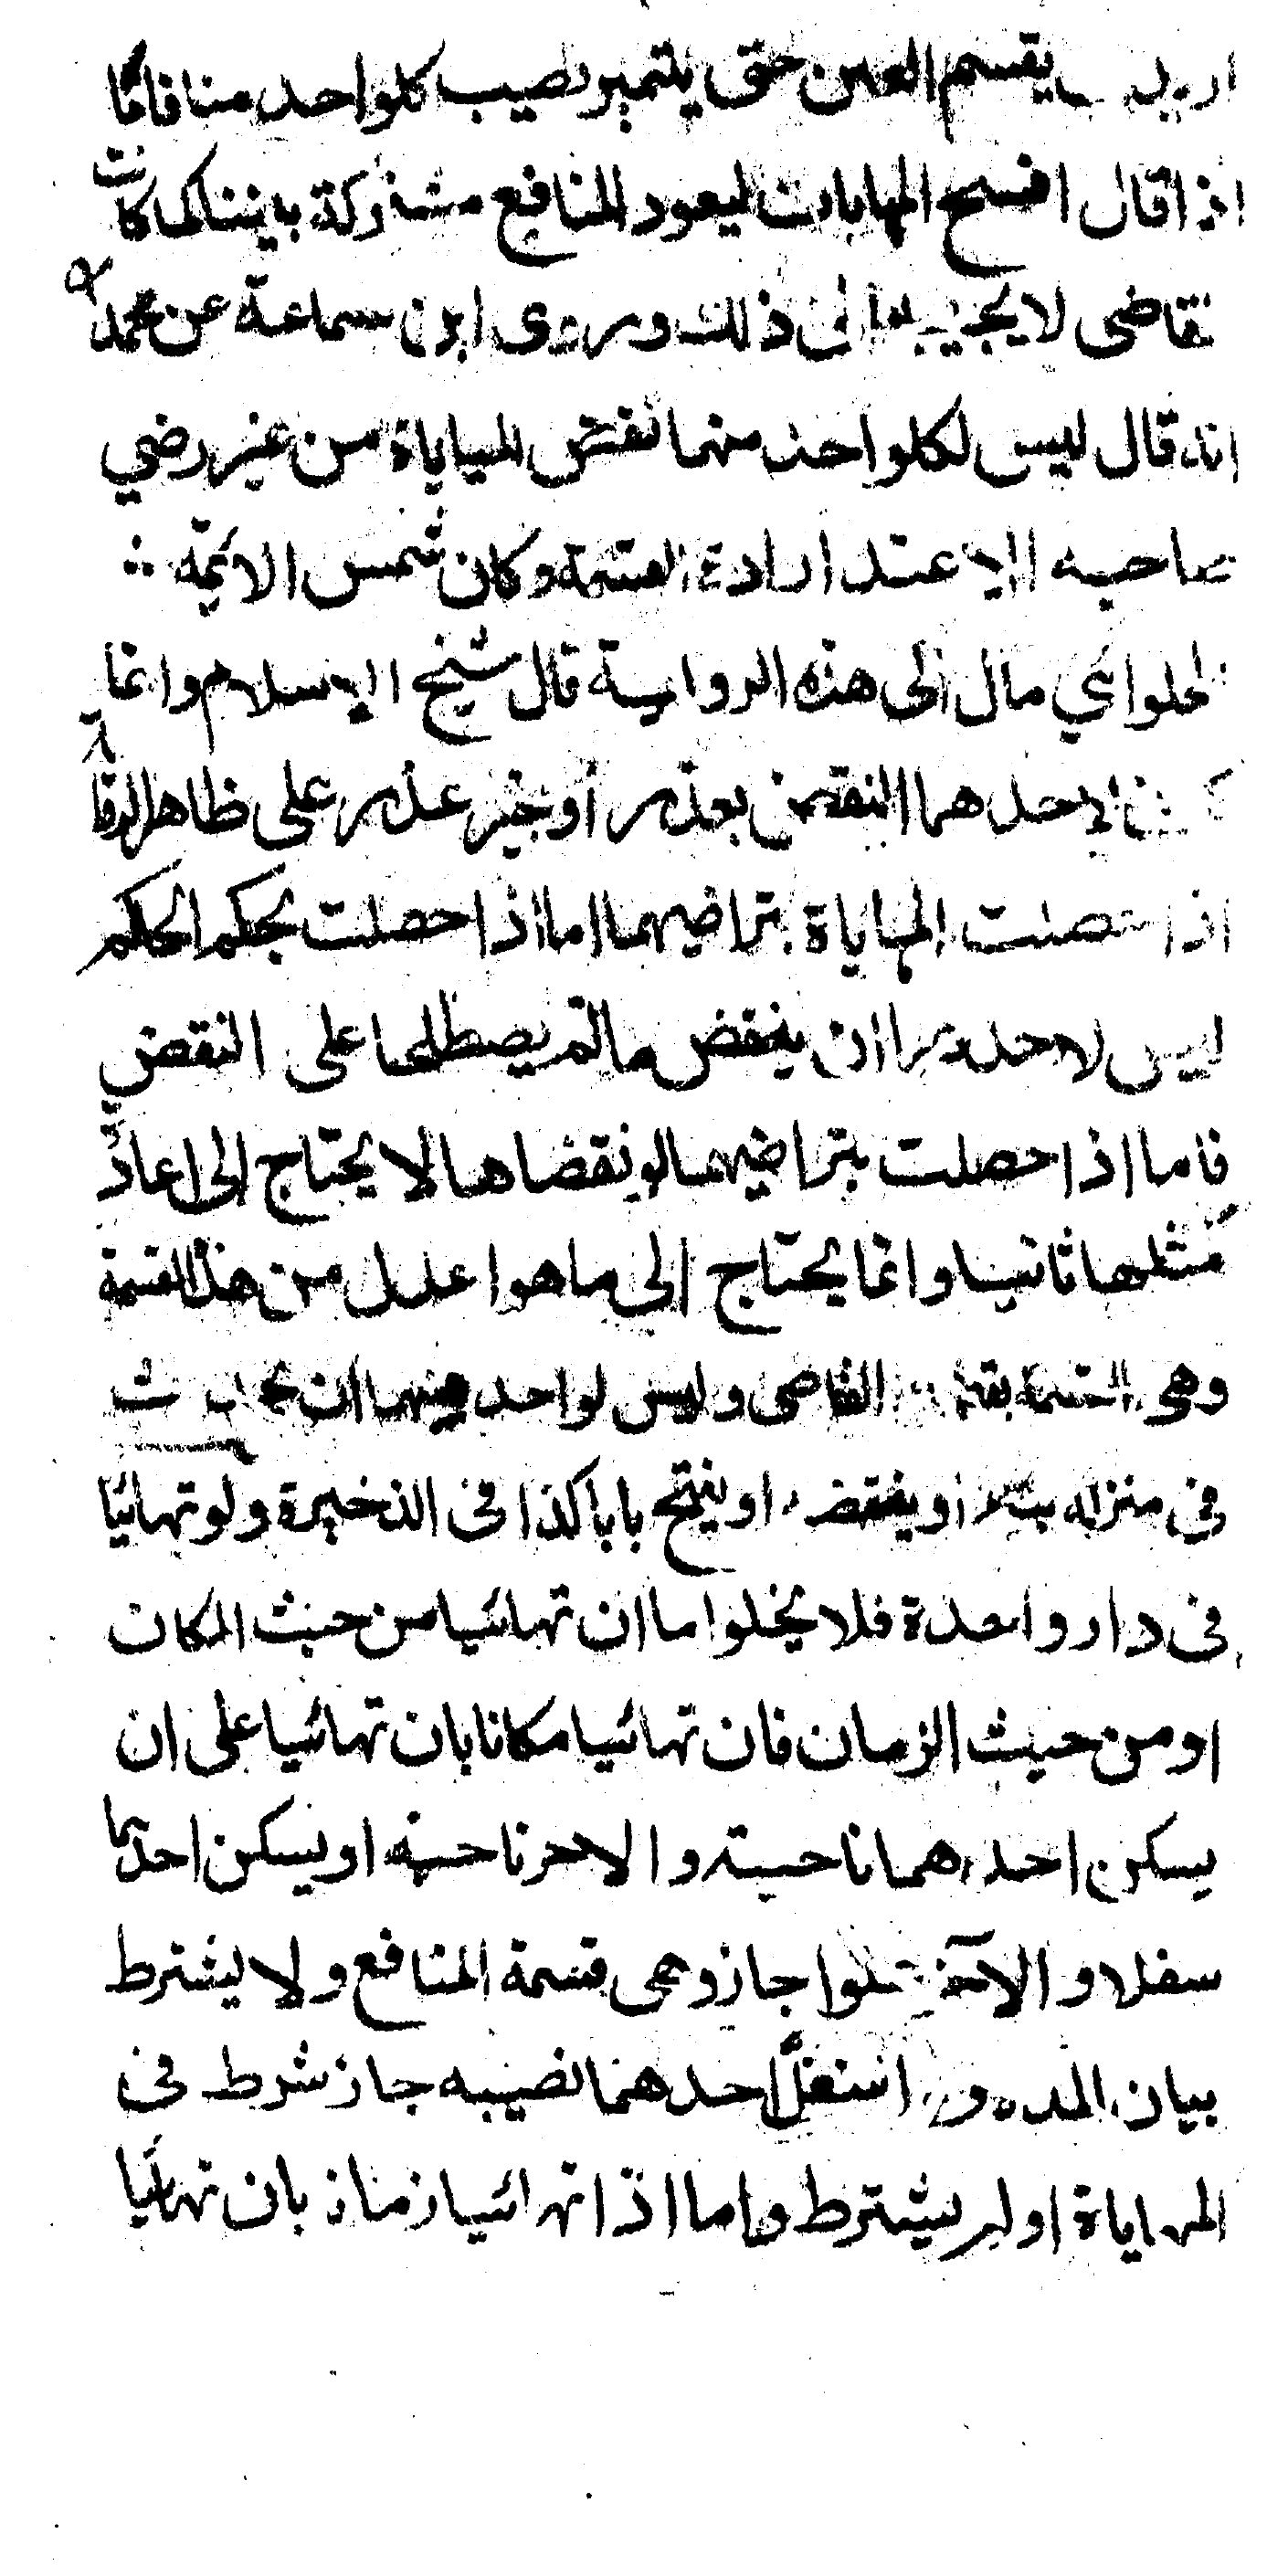 اريد يقسم العين حتى يتميز نصيب كلواحد منا فاما
اذا قال افسخ المهايات ليعود المنافع مشتركة بيننا كما كانت
لقاضى لا يجيبه الى ذلك وروى ابن سماعة عن محمد
انه قال ليس لكلواحد منهما نقض المهاياة من غير رضي
صاحبه الا عند ارادة القسمة وكان شمس الائمة
الحلوائي مال الى هذه الرواية قال شيخ الاسلام وانما
لاحدهما النقض بعذر او غير عذر على ظاهر الرواية
اذا حصلت المهاياة بتراضيهما اما اذا حصلت بحكم الحكم
ليس لاحدهما ان ينقض مالم يصطلحا على النقض
فاما اذا حصلت بتراضيهما لو نقضاها لا يحتاج الى اعادة
مثلها ثانيا وانما يحتاج الى ما هو اعدل من هذا القسمة
وهى القسمة بقضاء القاضى وليس لواحد منهما ان يحدث
فى منزله بناء او ينقضه او يفتح بابا كذا فى الذخيرة ولو تهائيا
فى دار واحدة فلا يخلوا ما ان تهائيا من حيث المكان
او من حيث الزمان فان تهائيا مكانا بان تهائيا على ان
يسكن احدهما ناحية والاخر ناحية او يسكن احدهما
سفلا والاخر علوا جاز وهى قسمة المنافع ولا يشترط
بيان المدة و استغل احدهما نصيبه جاز شرط فى
المهاياة او لم يشترط واما اذا تهائيا زمانا بان تهائيا